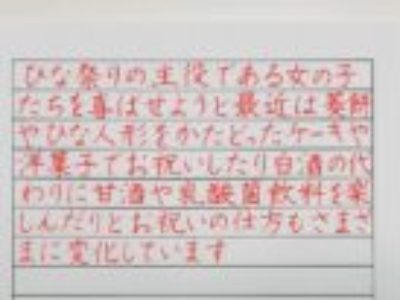 ひな祭りの主役である女の子
たちを喜ばせようと最近は菱餅
やひな人形をかたどったケーキや
洋菓子でお祝いしたり白酒の代
わりに甘酒や乳酸菌飲料を楽
しんだりとお祝いの仕方もさまざ
まに変化しています